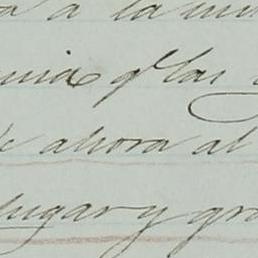 a la mis
q.e las
de ahora al
lugar y gra